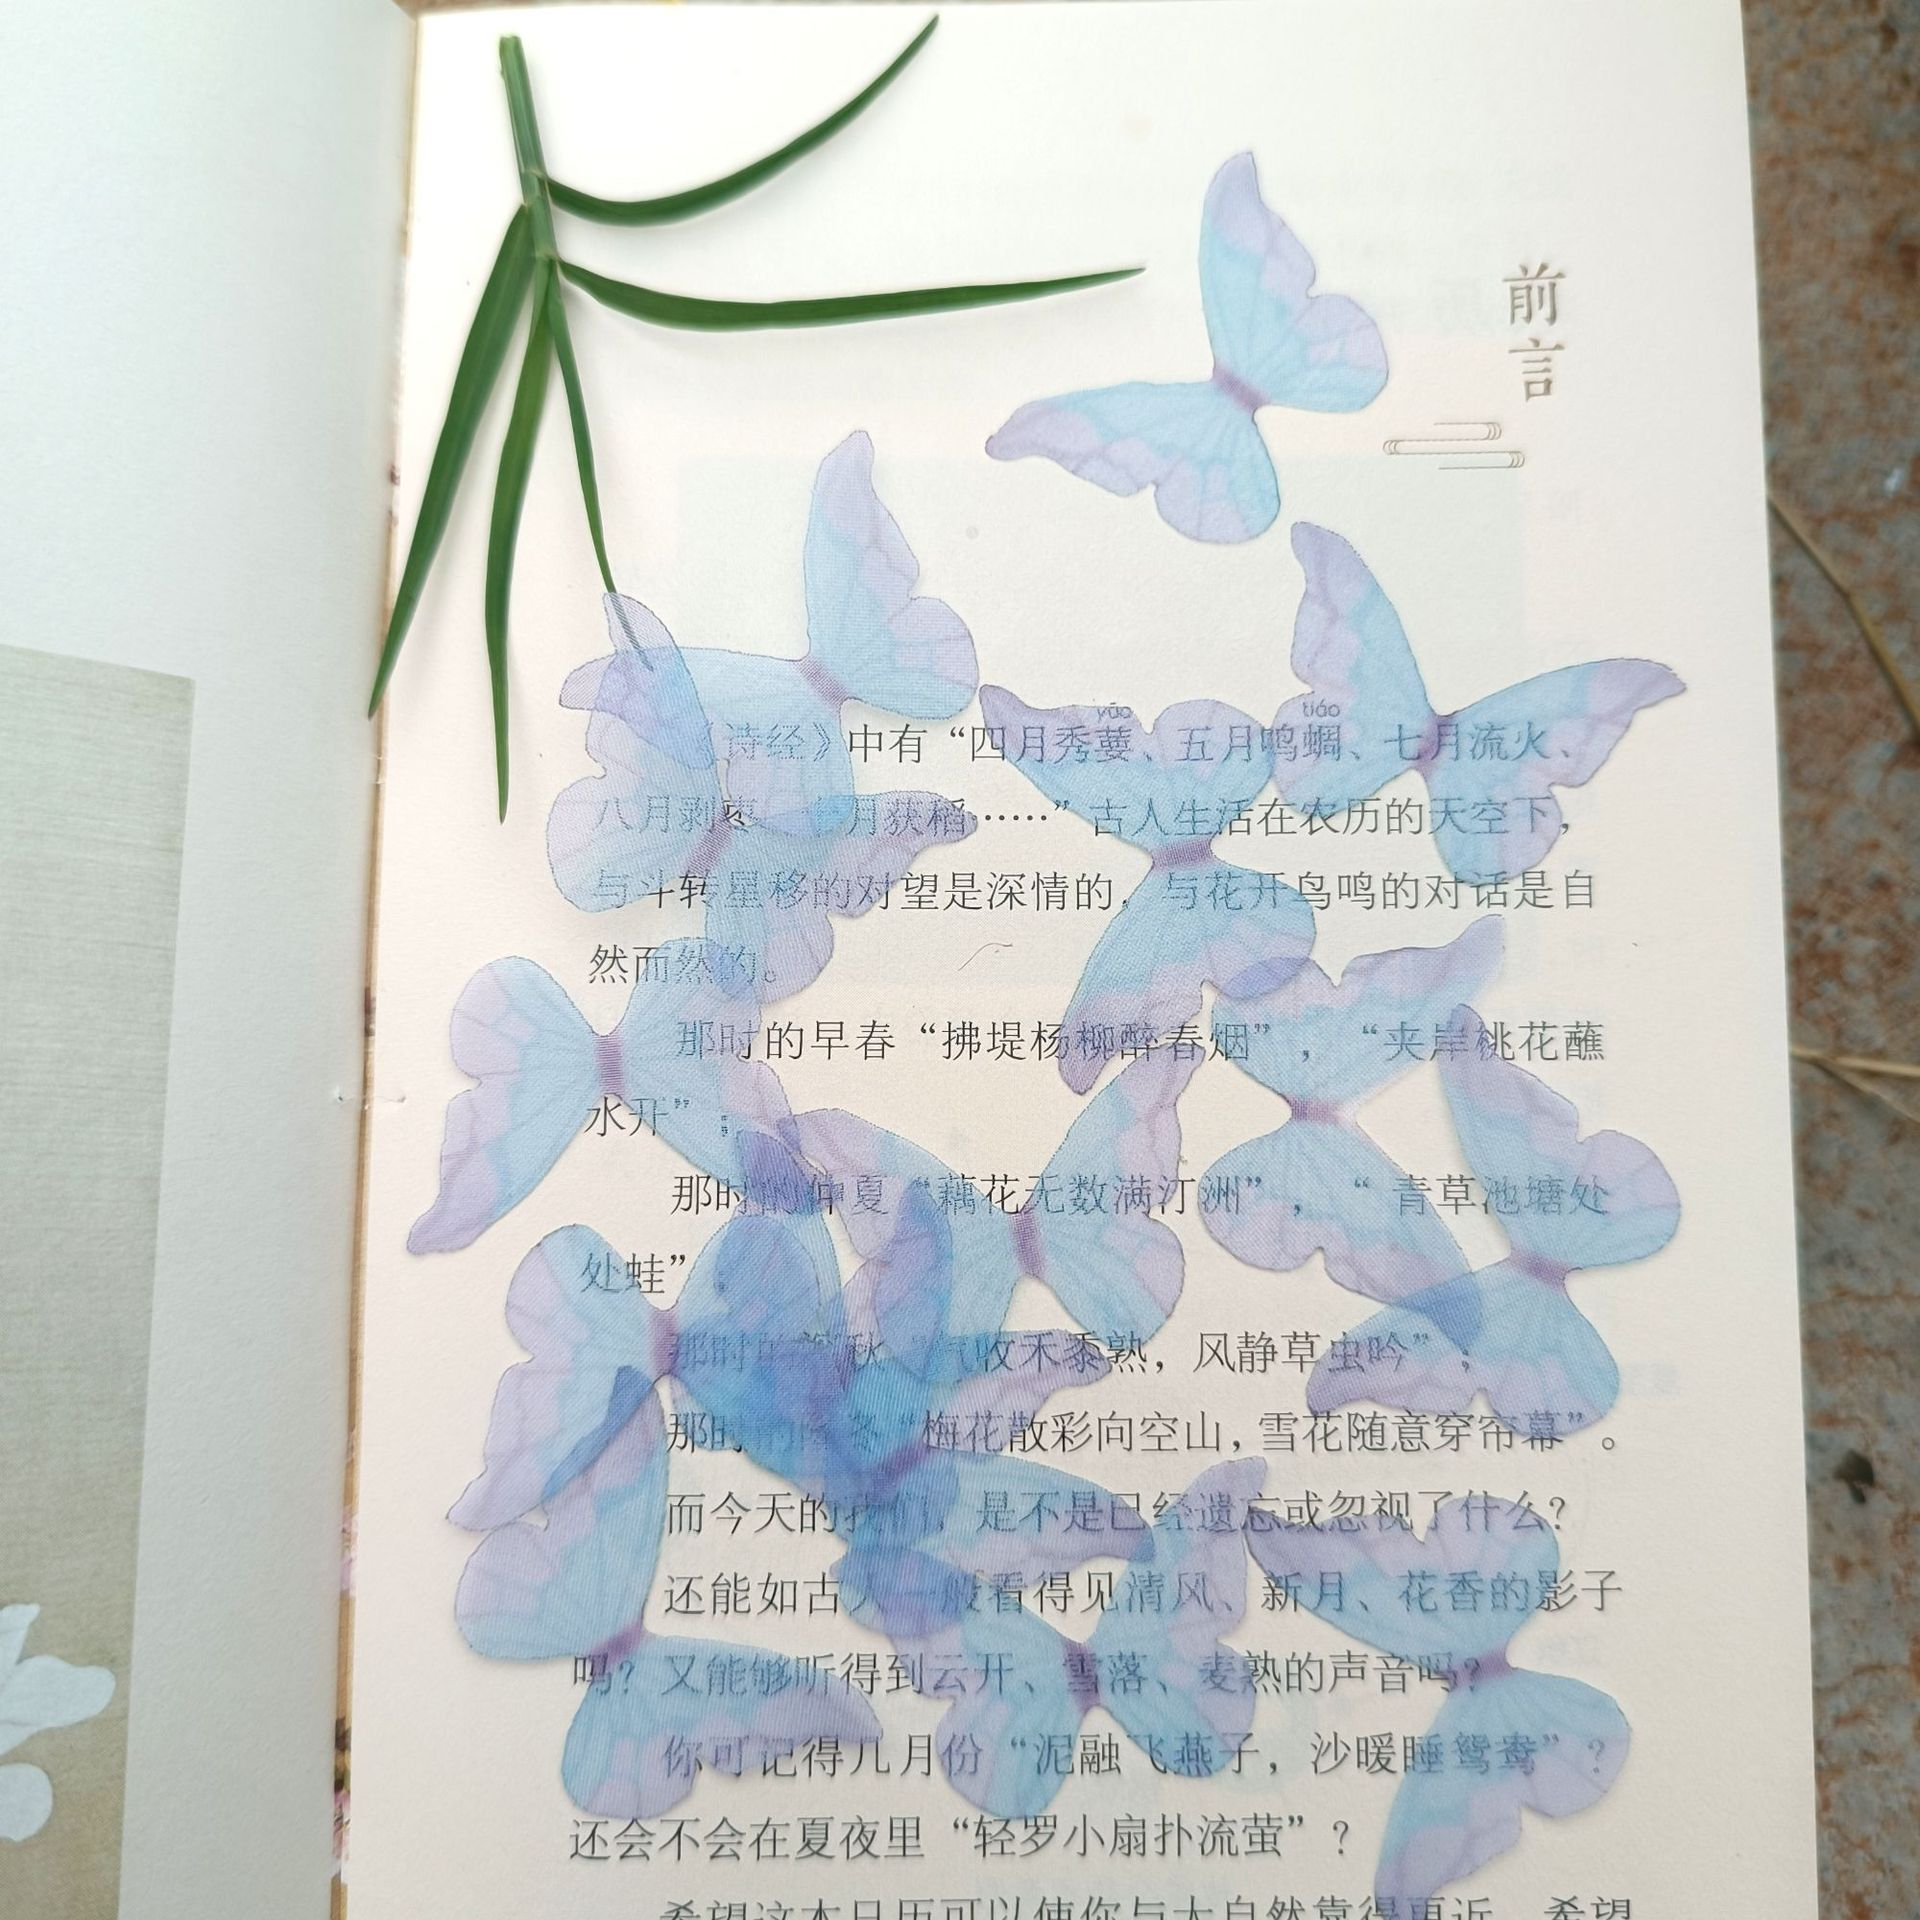 前言
yāo tiáo
《诗经》中有“四月秀葽、五月鸣蜩、七月流火、
八月剥枣、十月获稻……”古人生活在农历的天空下，
与斗转星移的对望是深情的，与花开鸟鸣的对话是自
然而然的。
那时的早春“拂堤杨柳醉春烟”，“夹岸桃花蘸
水开”；
那时的仲夏“藕花无数满汀洲”，“青草池塘处
处蛙”；
那时的 秋“气收禾黍熟，风静草虫吟”；
那时的 冬“梅花散彩向空山，雪花随意穿帘幕”。
而今天的我们，是不是已经遗忘或忽视了什么？
还能如古人一般看得见清风、新月、花香的影子
吗？又能够听得到云开、雪落、麦熟的声音吗？
你可记得几月份“泥融飞燕子，沙暖睡鸳鸯”？
还会不会在夏夜里“轻罗小扇扑流萤”？
希望这本日历可以使你与大自然靠得更近，希望